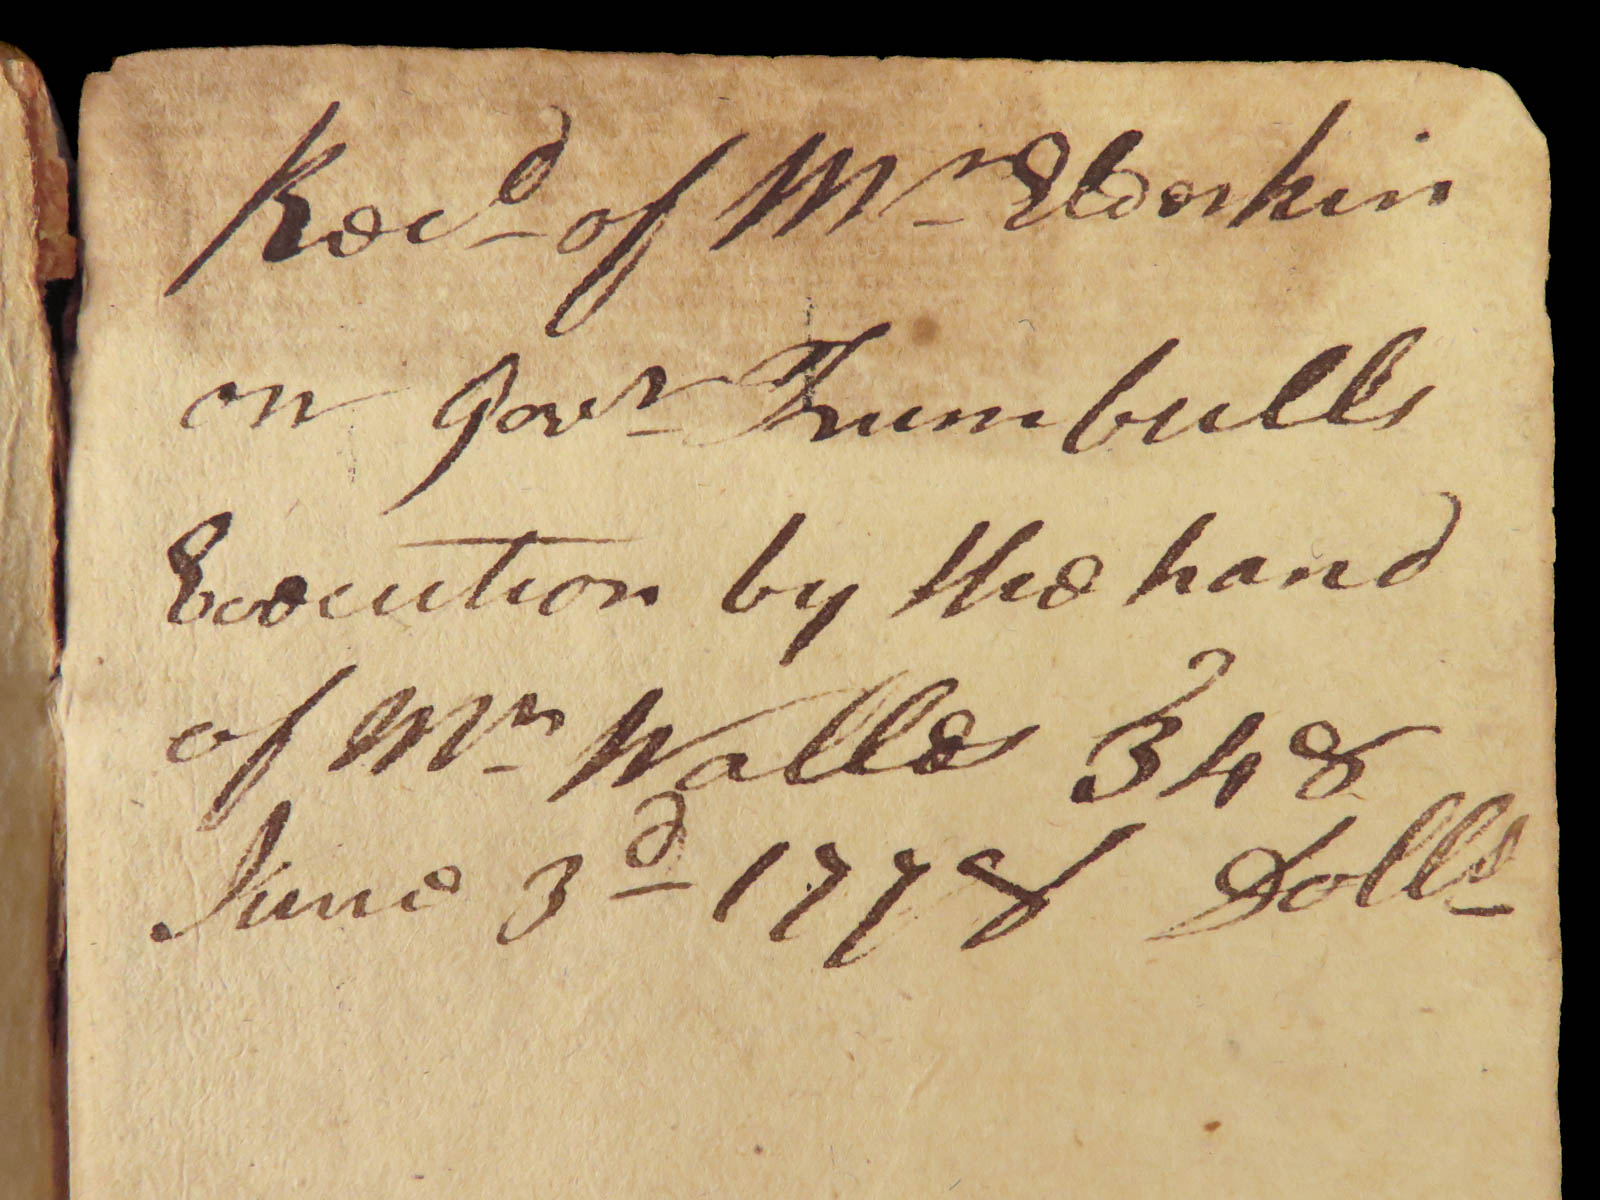 Rec,d of Mr Elderkin
on Govr Trumbulls
Execution by the hand
of Mr Walles 348
June 3d 1778 Dolls